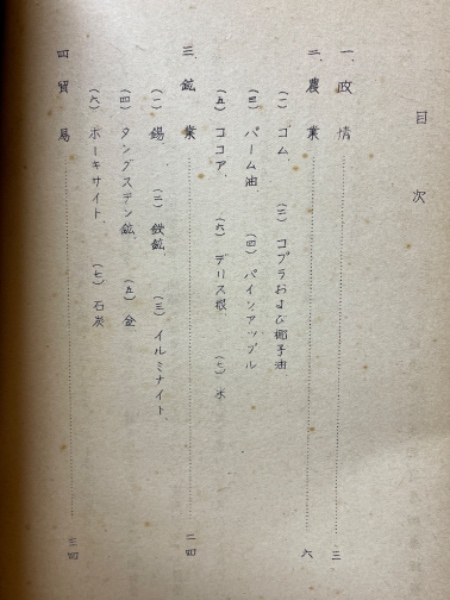 目次
一、政情 三
二、農業 六
(一)ゴム、 (二)コプラおよび椰子油、
(三)パーム油、 (四)パインアップル
(五)ココア、 (六)デリス根、 (七)米
三、鉱業 二四
(一)錫、 (二)鉄鉱、 (三)イルミナイト、
(四)タングステン鉱、 (五)金
(六)ボーキサイト、 (七)石炭
四 貿易 三四